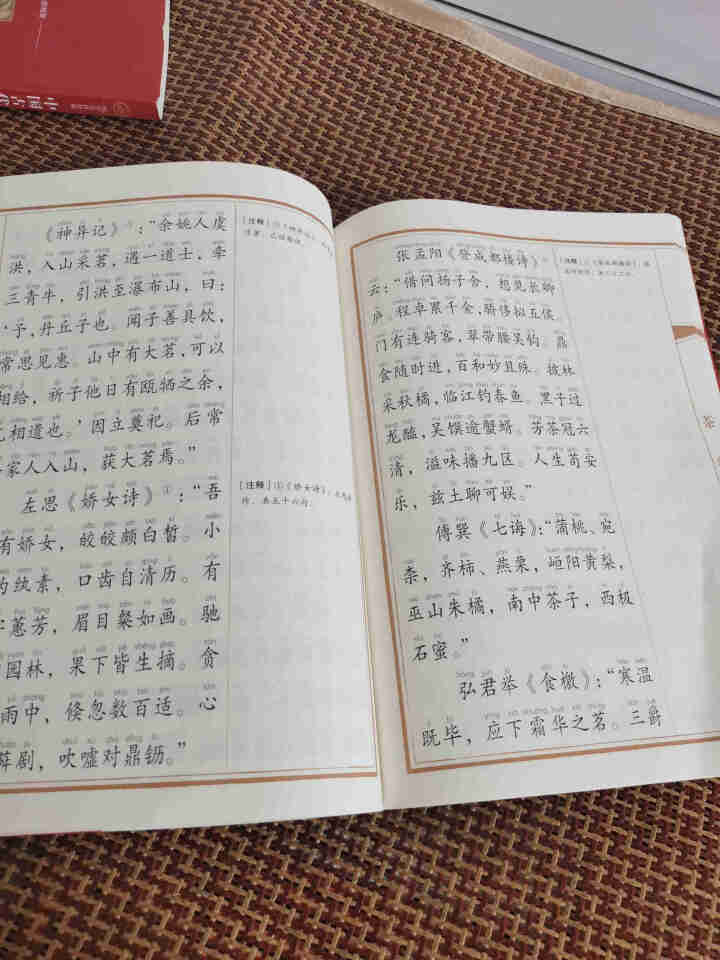 中国古
《神异记》①：“余姚人虞
洪，入山采茗，遇一道士，牵
三青牛，引洪至瀑布山，曰：
‘予，丹丘子也。闻子善具饮，
常思见惠。山中有大茗，可以
相给，祈子他日有瓯牺之余，
相遗也。’因立奠祀。后常
家人入山，获大茗焉。”
左思《娇女诗》①：“吾
有娇女，皎皎颇白皙。小
纨素，口齿自清历。有
蕙芳，眉目粲如画。驰
园林，果下皆生摘。贪
雨中，倏忽数百适。心
剧，吹嘘对鼎䥶。”
[注释]①《神异记》
[注释]①《娇女诗》：左思
作，共五十六句。
张孟阳《登成都楼诗》①
云：“借问扬子舍，想见长卿
庐。程卓累千金，骄侈拟五侯。
门有连骑客，翠带腰吴钩。鼎
食随时进，百和妙且殊。披林
采秋橘，临江钓春鱼。黑子过
龙醢，吴馔逾蟹蝑。芳茶冠六
清，溢味播九区。人生苟安
乐，兹土聊可娱。”
傅巽《七诲》：“蒲桃、宛
柰，齐柿、燕栗，峘阳黄梨，
巫山朱橘，南中茶子，西极
石蜜。”
弘君举《食檄》：“寒温
既毕，应下霜华之茗。三爵
[注释]①《登成都楼诗》
茶